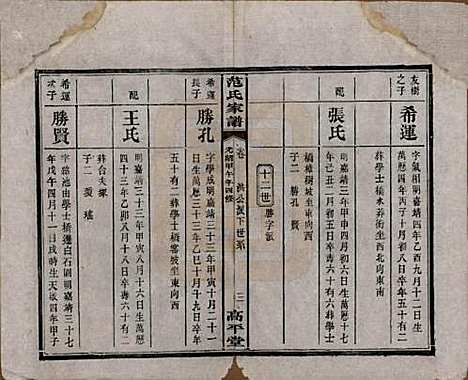 友樹
之子
希運
字氣相明嘉靖四年乙酉九月十二日生
萬歷四年丙子十月初三日卒年五十有二
葬學士橋水莽衕坐西北向東南
配
張氏
明嘉靖三年甲申四月初八日生萬歷十七
年己丑二月初五日卒壽六十有六葬學士
橋樟樹坡坐東向西
子二 勝孔 賢
十二世 勝字派
范氏家譜
卷 洪公派下世系
光緒甲午年四修
三
高平堂
希運
長子
勝孔
字學成明嘉靖三十三年甲寅八月二十一
日生萬歷三十三年乙巳十月十九日卒年
五十有二葬學士橋客坡坐東向西
配
王氏
明嘉靖三十三年甲寅八月十六日生萬歷
四十三年乙卯八月十八日卒壽六十有二
葬台夫葬
子二
希運
次子
勝賢
字諮池由學士橋遷白石園明嘉靖三十七
年戊午四月十一日戌時生天啟四年甲子